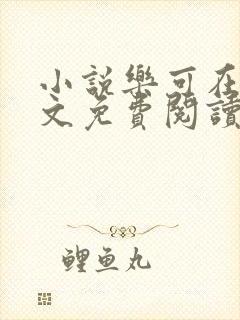 小說樂可在
文免費閱讀
鯉魚丸